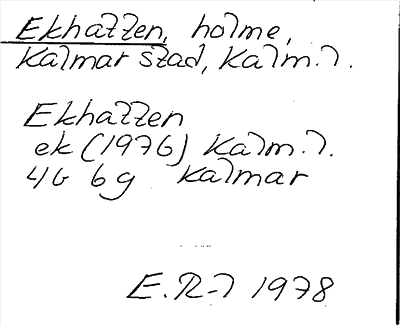 Ekhallen, holme,
Kalmar stad, Kalm. l.
Ekhallen
ek (1976) Kalm. l.
4G 6g Kalmar
E. R-l 1978